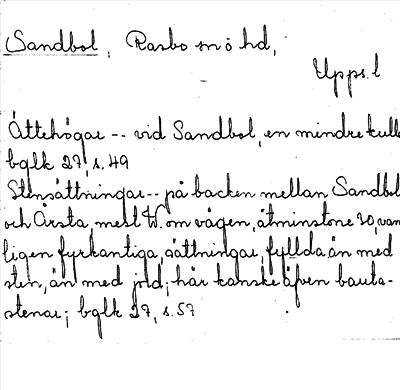 Sandbol, Rasbo sn ö hd,
Upps. l
Ättehögar -- vid Sandbol, en mindre kulle
bglk 27, s. 49
Stensättningar -- på backen mellan Sandbol
och Årsta, mell W. om vägen, åtminstone 20, van
ligen fyrkantiga, sättningar, fyllda än med
sten, än med jord; här kanske äfven bauta-
stenar; bglk 27, s. 57